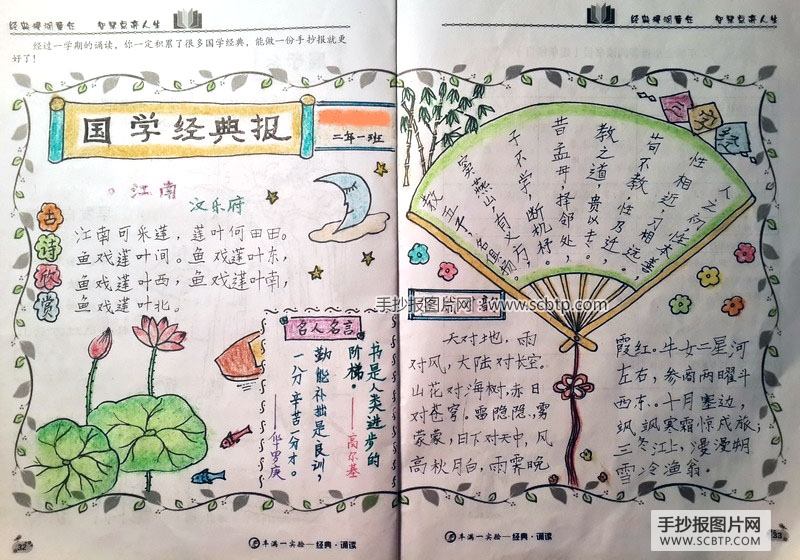 经典浸润童年 智慧点亮人生
经过一学期的诵读，你一定积累了很多国学经典，能做一份手抄报就更
好了！
国学经典报
二年一班
江南
汉乐府
古诗欣赏
江南可采莲，莲叶何田田。
鱼戏莲叶间。鱼戏莲叶东，
鱼戏莲叶西，鱼戏莲叶南，
鱼戏莲叶北。
名人名言
书是人类进步的
阶梯。——高尔基
勤能补拙是良训，
一分辛苦一分才。
——华罗庚
32
丰满一实验—经典·诵读
经典浸润童年 智慧点亮人生
人之初，性本善
性相近，习相远
苟不教，性乃迁，
教之道，贵以专，
昔孟母，择邻处，
子不学，断机杼。
窦燕山，有义方
教五子，名俱扬。
手抄报图片网：www.scbtp.com
天对地，雨
对风，大陆对长空。
山花对海树，赤日
对苍穹。雷隐隐，雾
蒙蒙，日下对天中，风
高秋月白，雨霁晚
霞红。牛女二星河
左右，参商两曜斗
西东。十月塞边
飒飒寒霜惊戍旅；
三冬江上，漫漫朔
雪冷渔翁。
丰满一实验—经典·诵读
33
手抄报图片网
www.SCBTP.com